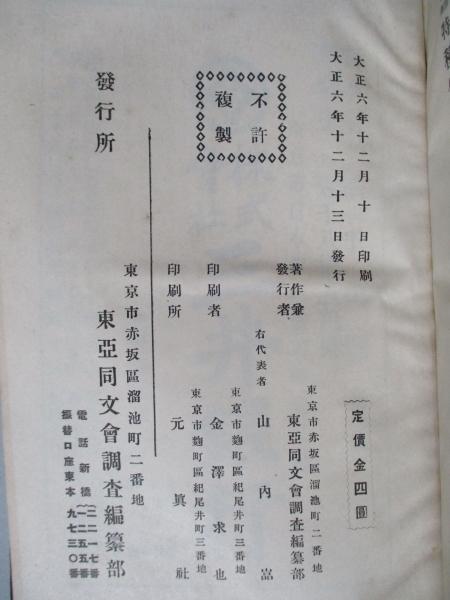 大正六年十二月十日印刷
大正六年十二月十三日發行
定價金四圓
不許
複製
著作兼
發行者
東京市赤坂區溜池町二番地
東亞同文會調査編纂部
右代表者 山內嵓
印刷者
東京市麴町區紀尾井町三番地
金澤求也
印刷所
東京市麴町區紀尾井町三番地
元眞社
發行所
東京市赤坂區溜池町二番地
東亞同文會調査編纂部
電話新橋
振替口座東本九七三〇番